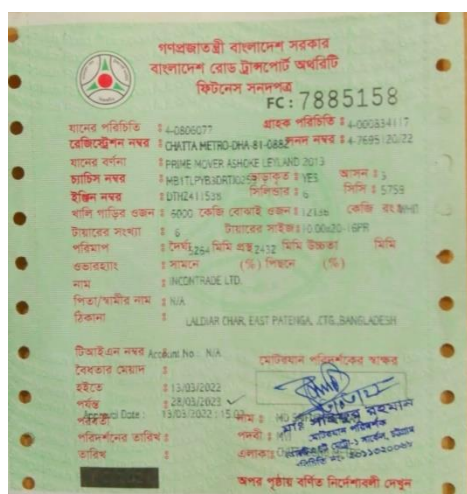 গণপ্রজাতন্ত্রী বাংলাদেশ সরকার
বাংলাদেশ রোড ট্রান্সপোর্ট অথরিটি
ফিটনেস সনদপত্র
FC: 7885158
যানের পরিচিতি : 4-0806077 গ্রাহক পরিচিতি : 4-000834117
রেজিস্ট্রেশন নম্বর : CHATTA METRO-DHA-81-0882 সনদ নম্বর : 4-7695120/22
যানের বর্ণনা : PRIME MOVER ASHOKE LEYLAND 2013
চ্যাসিস নম্বর : ভাড়াকৃত : YES আসন : 3
ইঞ্জিন নম্বর : DTHZ411538 সিলিন্ডার : 6 সিসি : 5759
খালি গাড়ির ওজন : 6000 কেজি বোঝাই ওজন : 12136 কেজি রং :
টায়ারের সংখ্যা : 6 টায়ারের সাইজ : 10.00x20-16PR
পরিমাপ : দৈর্ঘ্য 5264 মিমি প্রস্থ 2432 মিমি উচ্চতা মিমি
ওভারহ্যাং : সামনে (%) পিছনে (%)
নাম : INCONTRADE LTD.
পিতা/স্বামীর নাম : N/A
ঠিকানা : LALDIAR CHAR, EAST PATENGA, ,CTG.,BANGLADESH
টিআইএন নম্বর Account No.: N/A মোটরযান পরিদর্শকের স্বাক্ষর
বৈধতার মেয়াদ :
হইতে : 13/03/2022
পর্যন্ত : 28/03/2023
Approval Date : 13/03/2022 : 15:02 নাম :
পরবর্তী
পরিদর্শনের তারিখ : পদবী :
তারিখ : এলাকা :
মোটরযান পরিদর্শক
অপর পৃষ্ঠায় বর্ণিত নির্দেশাবলী দেখুন